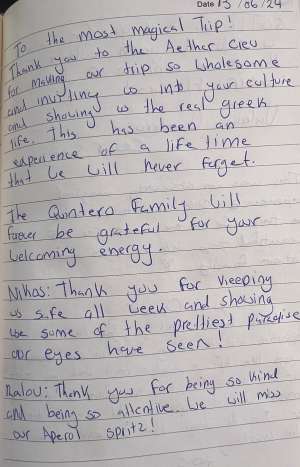 Date 13/06/24
To the most magical Trip!
Thank you to the Aether Crew
for making our trip so wholesome
and inviting us into your culture
and showing us the real greek
life. This has been an
experience of a life time
that we will never forget.
The Quintero Family will
forever be grateful for your
welcoming energy.
Nikos: Thank you for keeping
us safe all week and showing
use some of the prettiest paradise
our eyes have seen!
Malou: Thank you for being so kind
and being so attentive. We will miss
our Aperol spritz!